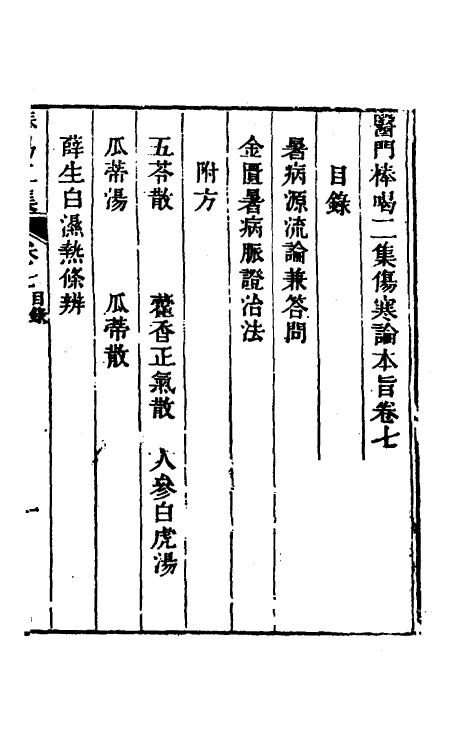 醫門棒喝二集傷寒論本旨卷七
目錄
暑病源流論兼答問
金匱暑病脈證治法
附方
五苓散　藿香正氣散　人參白虎湯
瓜蒂湯　瓜蒂散
薛生白濕熱條辨
卷七目錄
一